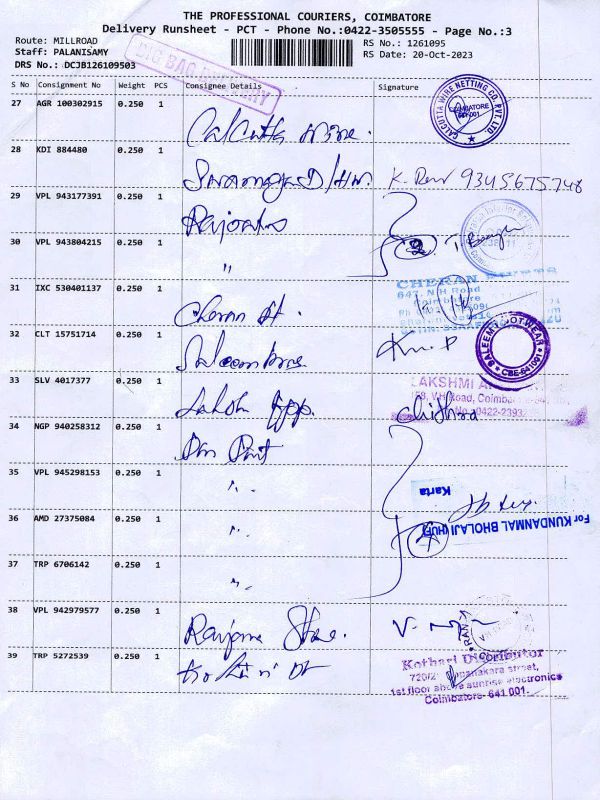 THE PROFESSIONAL COURIERS, COIMBATORE
Delivery Runsheet - PCT - Phone No.:0422-3505555 - Page No.:3
Route: MILLROAD
RS No.: 1261095
Staff: PALANISAMY
RS Date: 20-Oct-2023
DRS No.: DCJB126109503
BIG BAG DELIVERY
S No Consignment No Weight PCS Consignee Details Signature
27 AGR 100302915 0.250 1 Calcutta wire.
CALCUTTA WIRE NETTING CO. PVT. LTD.
COIMBATORE
641 001
28 KDI 884480 0.250 1
K. Devi 9345675748
29 VPL 943177391 0.250 1
30 VPL 943804215 0.250 1 "
2
31 IXC 530401137 0.250 1 Cheran
CHERAN
647, N H Road
Coimbatore
32 CLT 15751714 0.250 1 Saleem
SALEEM FOOTWEAR
CBE-641001
33 SLV 4017377 0.250 1 Laksh App.
LAKSHMI
V.H Road, Coimbatore
No.:0422-2393
Chithra
34 NGP 940258312 0.250 1
35 VPL 945298153 0.250 1 "
Karta
36 AMD 27375084 0.250 1 "
4
For KUNDANMAL BHOLAJI (HUF)
37 TRP 6706142 0.250 1 "
38 VPL 942979577 0.250 1 Store.
39 TRP 5272539 0.250 1 Kothari
Kothari Distributor
street,
1st floor above sunrise electronics
Coimbatore- 641 001.